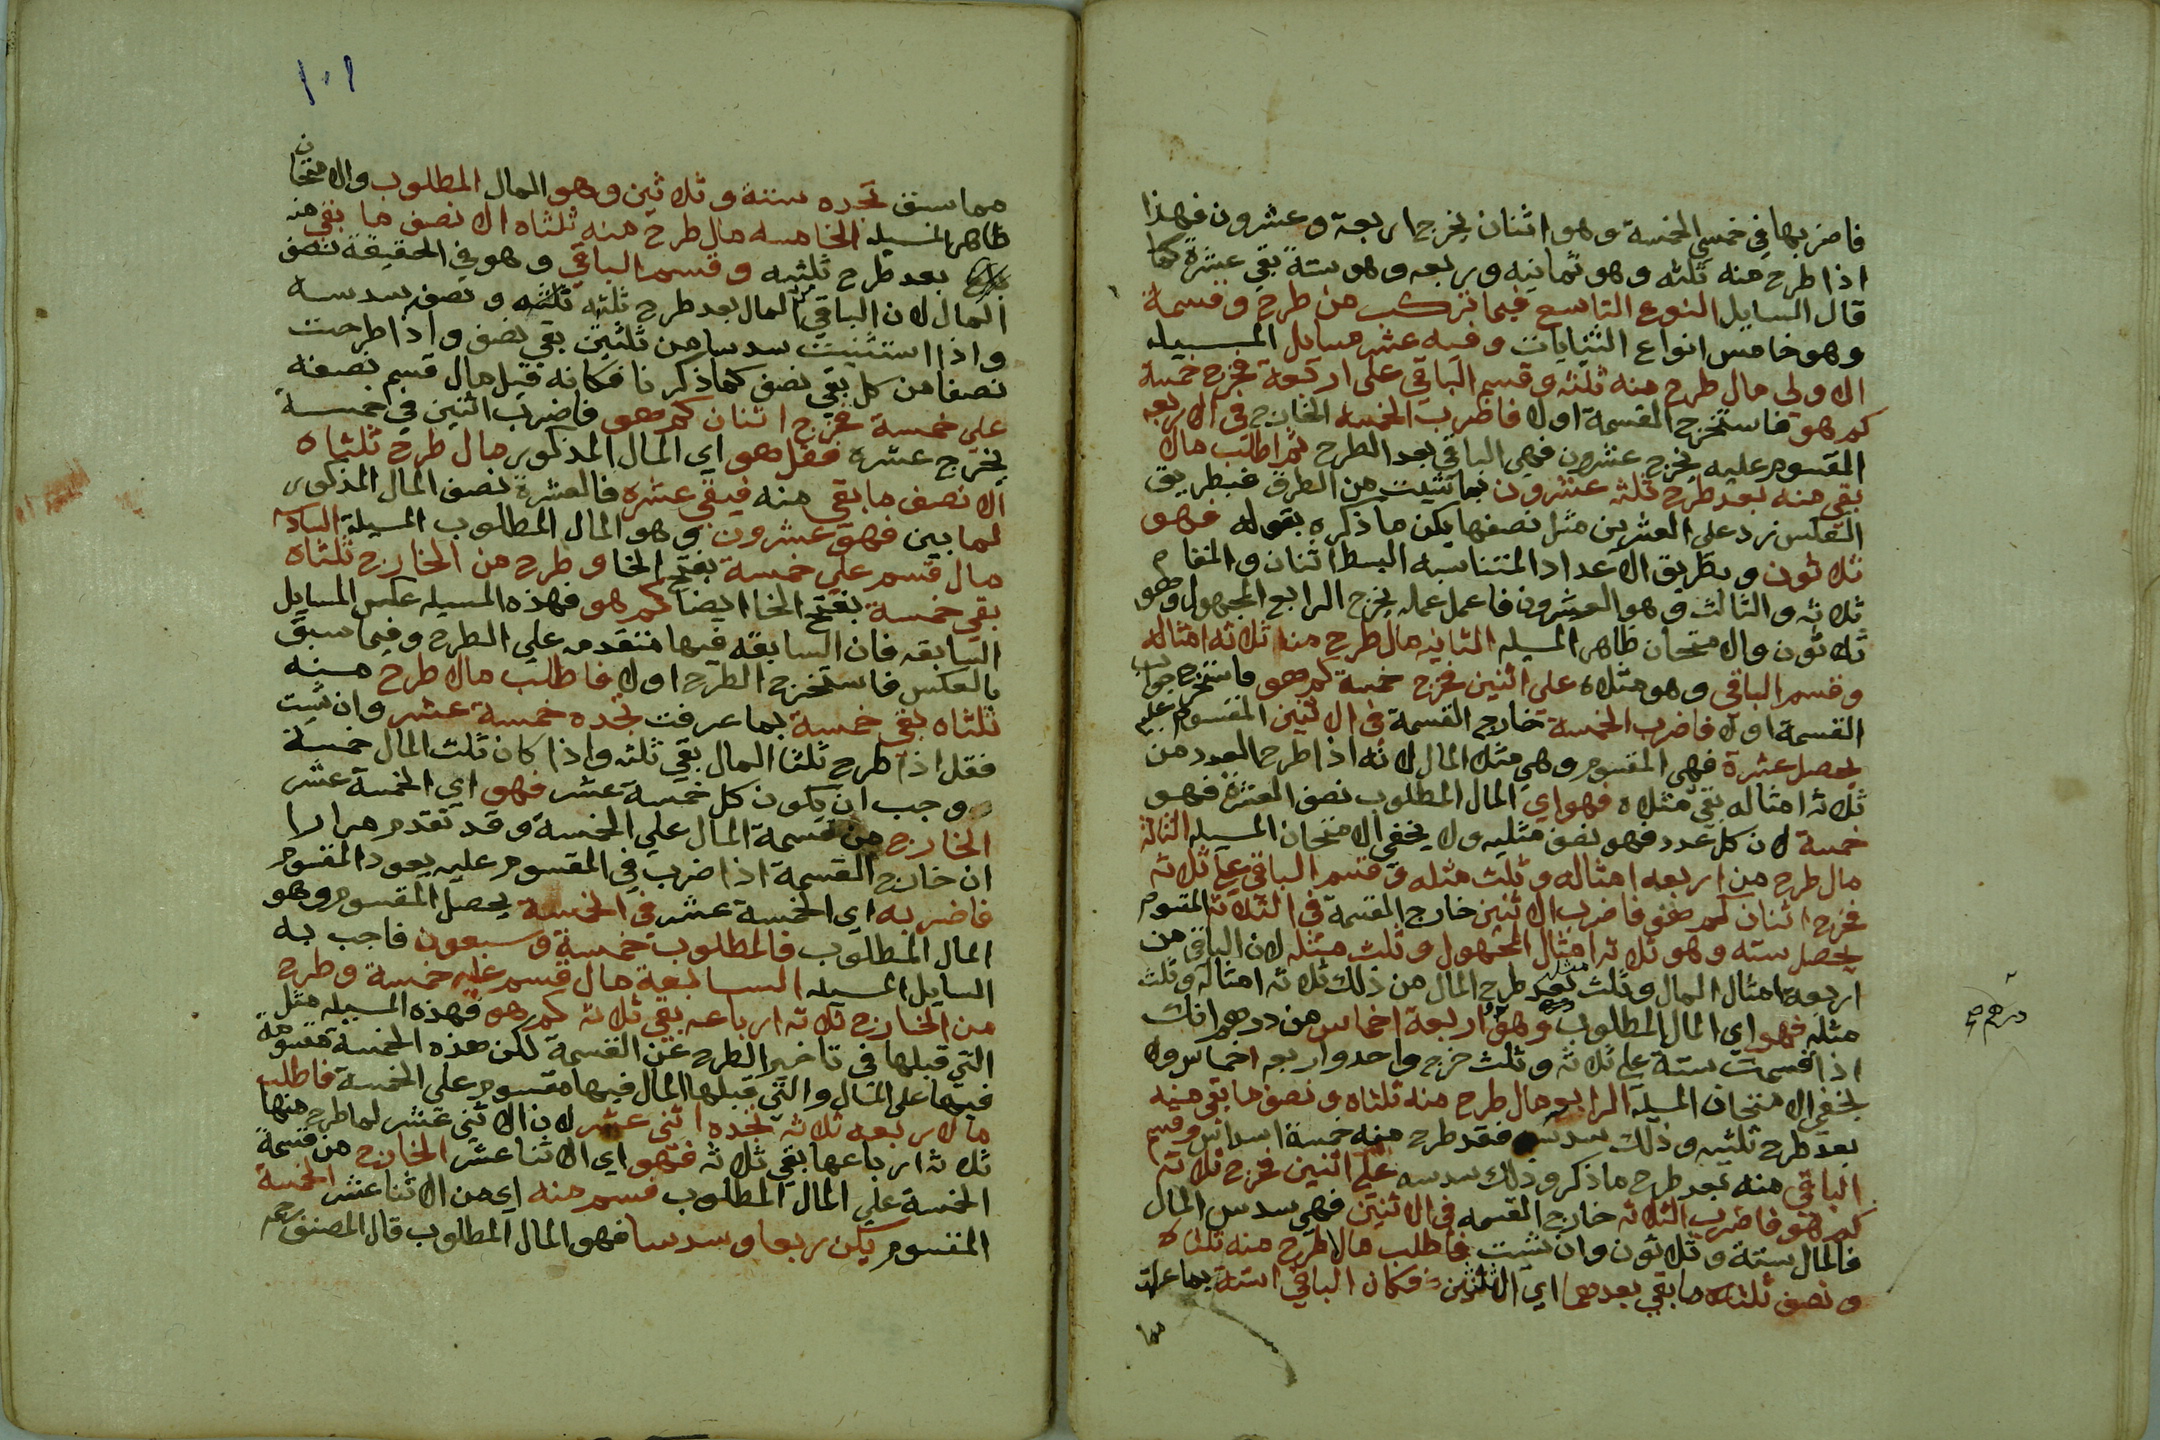 فاضربها في خمسي الخمسة وهو اثنان يخرج اربعة وعشرون فهذا
اذا طرح منه ثلثه وهو ثمانيه وربعه وهو ستة بقي عشرة كما
قال السايل النوع التاسع فيما تركب من طرح وقسمة
وهو خامس انواع الثنايات وفيه عشر مسايل المسيله
الاولى مال طرح منه ثلثه وقسم الباقي على اربعة فخرج خمسة
كم هو فاستخرج القسمة اولا فاضرب الخمسه الخارج في الاربعه
المقسوم عليه يخرج عشرون فهي الباقي بعد الطرح ثم اطلب مالا
بقي منه بعد طرح ثلثه عشرون بما شيت من الطرق فبطريق
العكس زد على العشرين مثل نصفها يكن ما ذكره بقوله فهو
ثلاثون وبطريق الاعداد المتناسبه البسط اثنان والمقام
ثلاثه والثالث وهو العشرون فاعمل عمله يخرج الرابع المجهول وهو
ثلاثون والامتحان ظاهر المسيله الثانيه مال طرح منه ثلاثه امثاله
وقسم الباقي وهو مثلاه على اثنين فخرج خمسة كم هو فاستخرج جواب
القسمة اولا فاضرب الخمسة خارج القسمة في الاثنين المقسوم عليه
يحصل عشرة فهي المقسوم وهي مثلا المال لانه اذا طرح العدد من
ثلاثه امثاله بقي مثلاه فهو اي المال المطلوب نصف العشرة فهو
خمسة لان كل عدد فهو نصف مثليه ولا يخفي الامتحان المسيله الثالثة
مال طرح من اربعه امثاله وثلث مثله وقسم الباقي على ثلاثه
فخرج اثنان كم هو فاضرب الاثنين خارج القسمة في الثلاثه المقسوم
يحصل سته وهو ثلاثه امثال المجهول وثلث مثله لان الباقي من
اربعة امثال المال وثلث مثله بعد طرح المال من ذلك ثلاثه امثاله وثلث
مثله فهو اي المال المطلوب درهم وهو اربعة اخماس من درهم انك
اذا قسمت ستة على ثلاثه وثلث خرج واحد واربعه اخماس ولا
يخفي الامتحان المسيله الرابعه مال طرح منه ثلثاه ونصف ما بقي منه
بعد طرح ثلثيه وذلك سدسه فقد طرح منه خمسة اسداس وقسم
الباقي منه بعد طرح ما ذكر وذلك سدسه على اثنين فخرج ثلاثه
كم هو فاضرب الثلاثه خارج القسمه في الاثنين فهي سدس المال
فالمال ستة وثلاثون وان شيت فاطلب مالا طرح منه ثلثاه
ونصف ثلثه ما بقي بعدهما اي الثلثين فكان الباقي ستة بما عرفت
مما
درهم
١٠١
مما سبق تجده ستة وثلاثين وهو المال المطلوب والامتحان
ظاهر المسيله الخامسه مال طرح منه ثلثاه الا نصف ما بقي منه
بعد طرح ثلثيه وقسم الباقي وهو في الحقيقة نصف
المال لان الباقي من المال بعد طرح ثلثيه ثلثه ونصف سدسه
واذا استثنيت سدسا من ثلثين بقي نصف واذا طرحت
نصفا من كل بقي نصف كما ذكرنا فكانه قيل مال قسم نصفه
على خمسة فخرج اثنان كم هو فاضرب اثنين في خمسة
يخرج عشرة فقل هو اي المال المذكور مال طرح ثلثاه
الا نصف ما بقي منه فبقي عشرة فالعشرة نصف المال المذكور
لما بين فهو عشرون وهو المال المطلوب المسيلة السادسه
مال قسم على خمسة بفتح الخا وطرح من الخارج ثلثاه
بقي خمسة بفتح الخا ايضا كم هو فهذه المسيله عكس المسايل
السابقه فان السابقه فيها متقدمه على الطرح وفيما سبق
بالعكس فاستخرج الطرح اولا فاطلب مالا طرح منه
ثلثاه بقي خمسة بما عرفت تجده خمسة عشر وان شيت
فقل اذا طرح ثلثا المال بقي ثلثه واذا كان ثلث المال خمسة
وجب ان يكون كل خمسة عشر فهو اي الخمسة عشر
الخارج من قسمة المال على الخمسة وقد تقدم مرارا
ان خارج القسمة اذا ضرب في المقسوم عليه يعود المقسوم
فاضربه اي الخمسة عشر في الخمسة يحصل المقسوم وهو
المال المطلوب فالمطلوب خمسة وسبعون فاجب به
السايل المسيله السابعة مال قسم عليه خمسة وطرح
من الخارج ثلاثه ارباعه بقي ثلاثه كم هو فهذه المسيله مثل
التي قبلها في تاخير الطرح عن القسمة لكن هذه الخمسة مقسومة
فيها على المال والتي قبلها المال فيها مقسوم على الخمسة فاطلب
مالا ربعه ثلاثه تجده اثني عشر لان الاثني عشر لما طرح منها
ثلاثه ارباعها بقي ثلاثه فهو اي الاثنا عشر الخارج من قسمة
الخمسة على المال المطلوب قسم منه اي من الاثنا عشر الخمسة
المقسوم يكن ربعا وسدسا فهو المال المطلوب قال المصنف رحمه